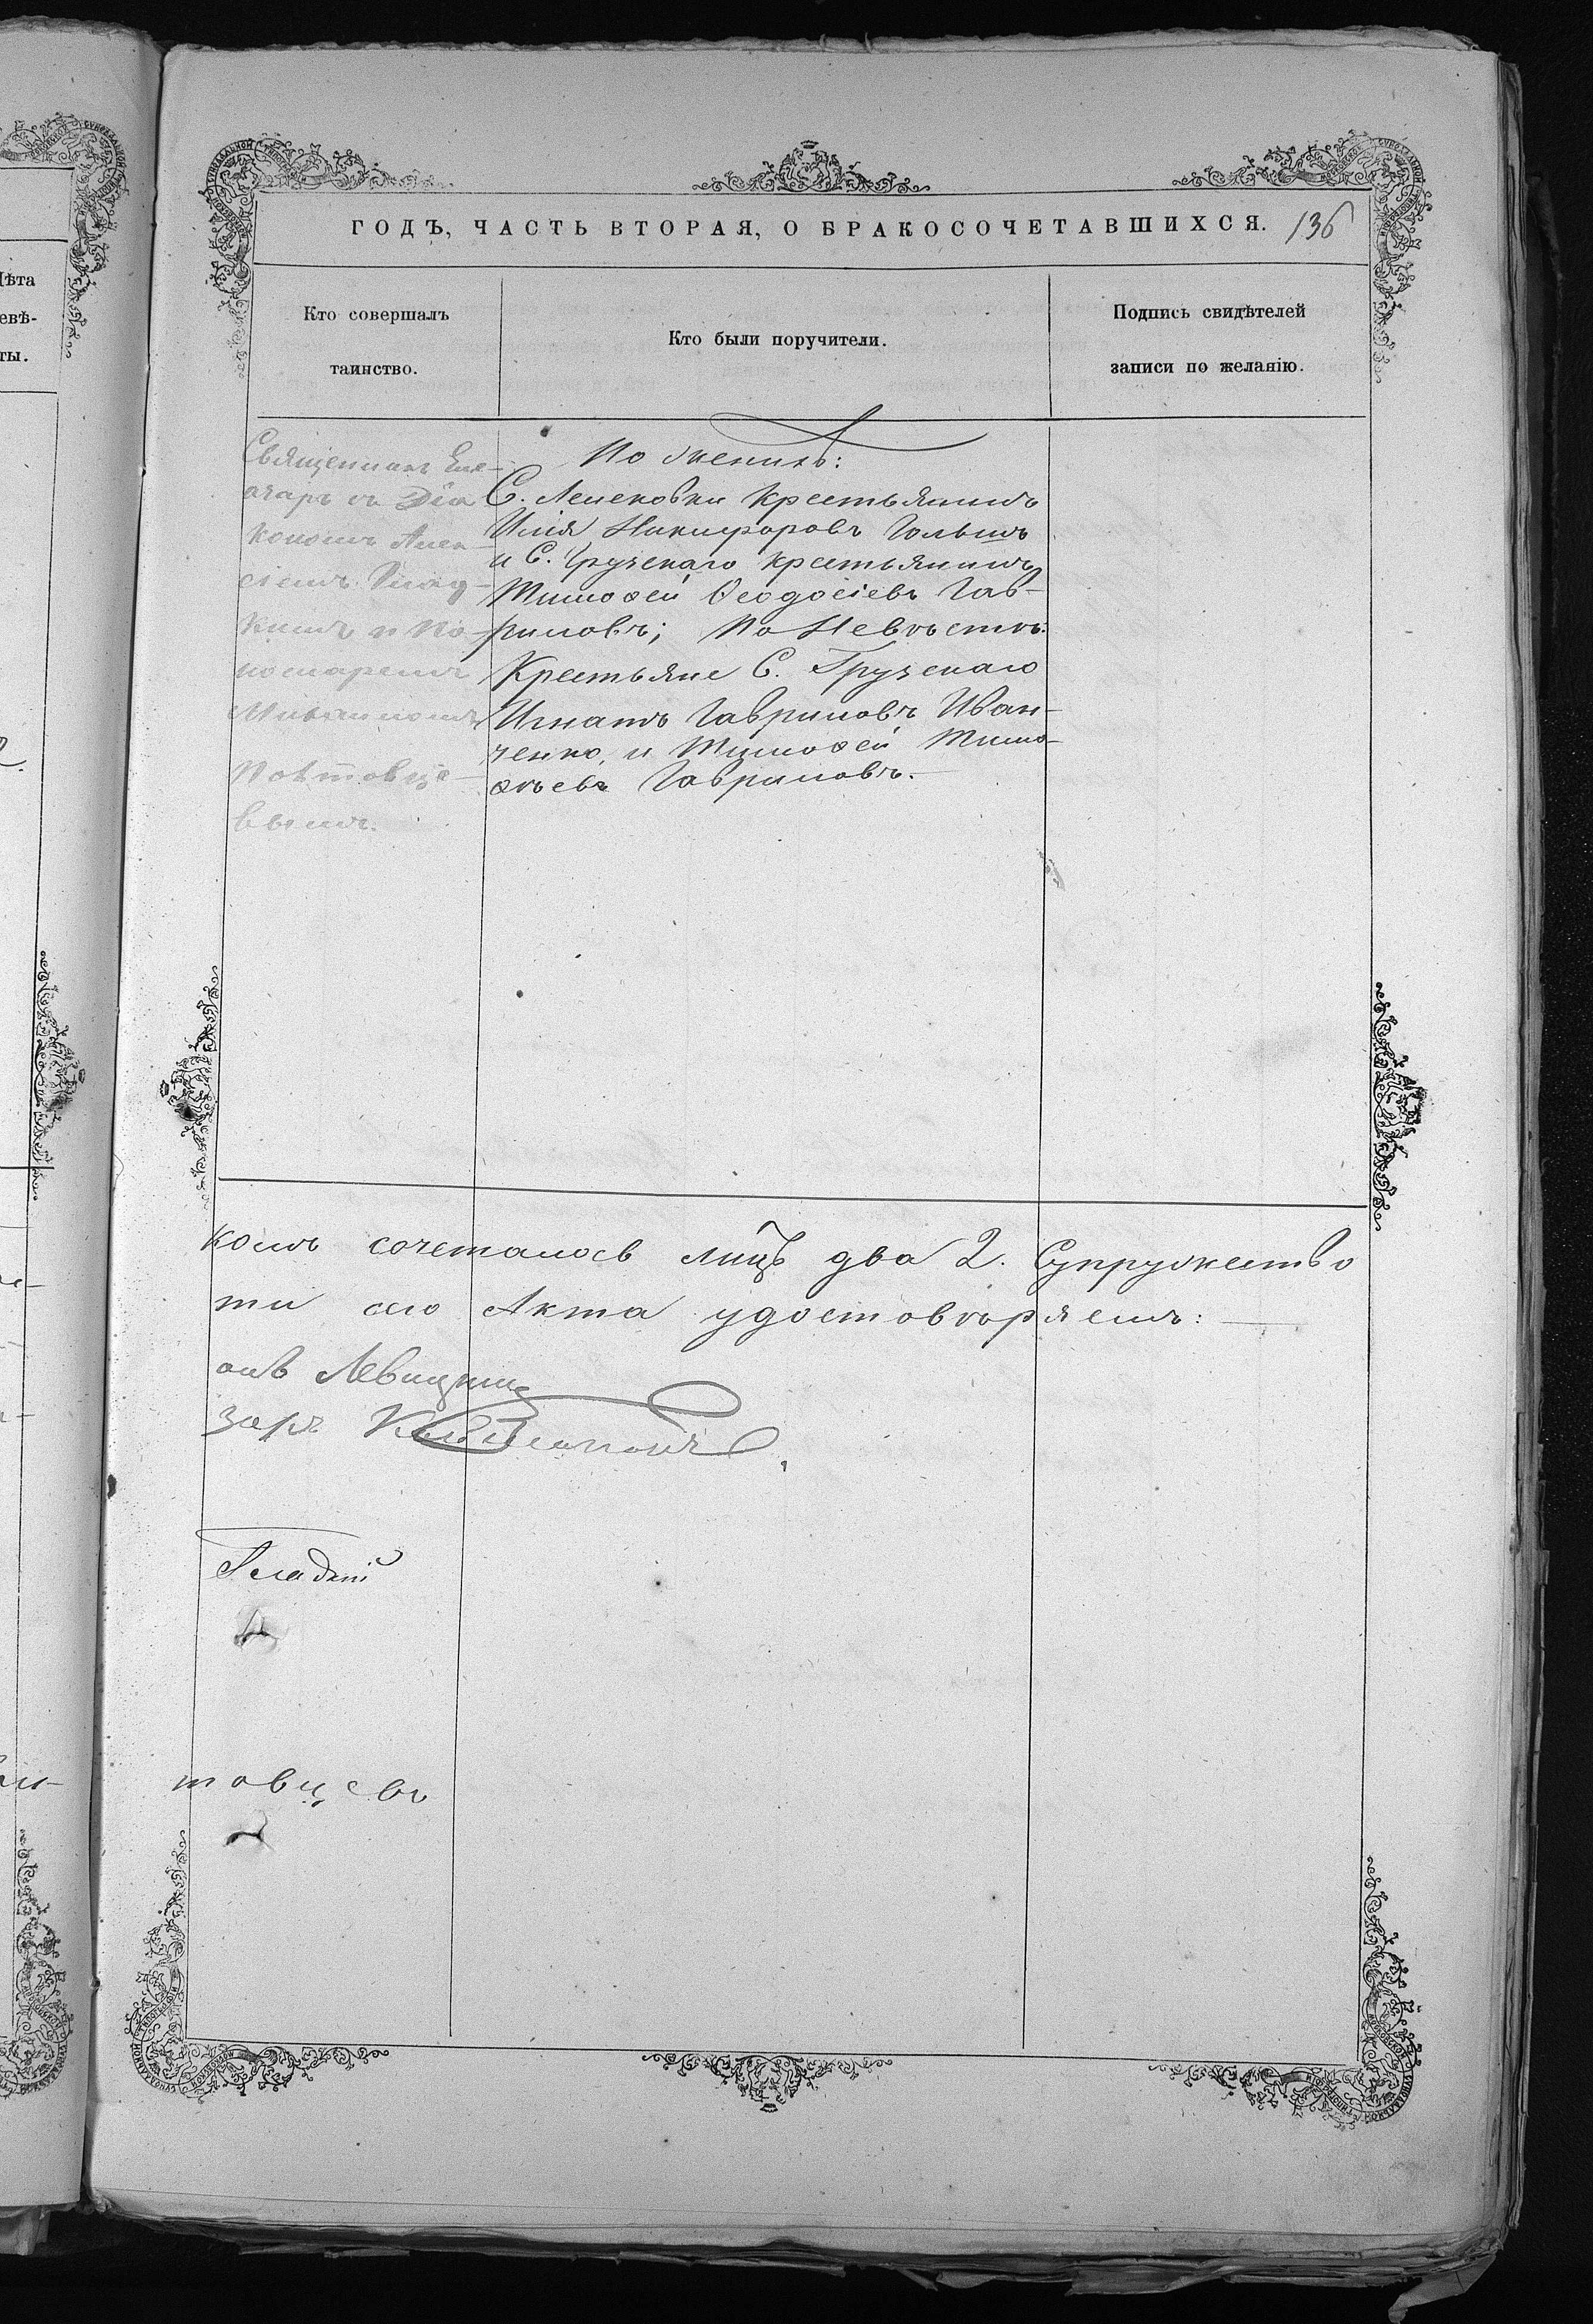 ГОДЪ, ЧАСТЬ ВТОРАЯ, О БРАКОСОЧЕТАВШИХСЯ. 136
Кто совершалъ
таинство.
Кто были поручители.
Подпись свидѣтелей
записи по желанію.
Священникъ Еле-
азаръ съ Діа
кономъ Алек-
сіемъ Глад-
кимъ и По-
номаремъ
Полтовце-
вымъ.
По женихѣ:
С. Лемековки крестьянинъ
Илія Никифоровъ Голышъ
и С. Грузскаго крестьянинъ
Тимоѳей Ѳеодосіевъ Гав-
риловъ; По Невѣстѣ:
Крестьяне С. Грузскаго
Игнатъ Гавриловъ Иван-
ченко, и Тимоѳей Тимо-
ѳѣевъ Гавриловъ.
комъ сочеталось лицъ два 2. Супружество
ти сего Акта удостовѣряемъ:
Левицкій
заръ
Гладкій
товцевъ
Лѣта
евѣ-
ты.